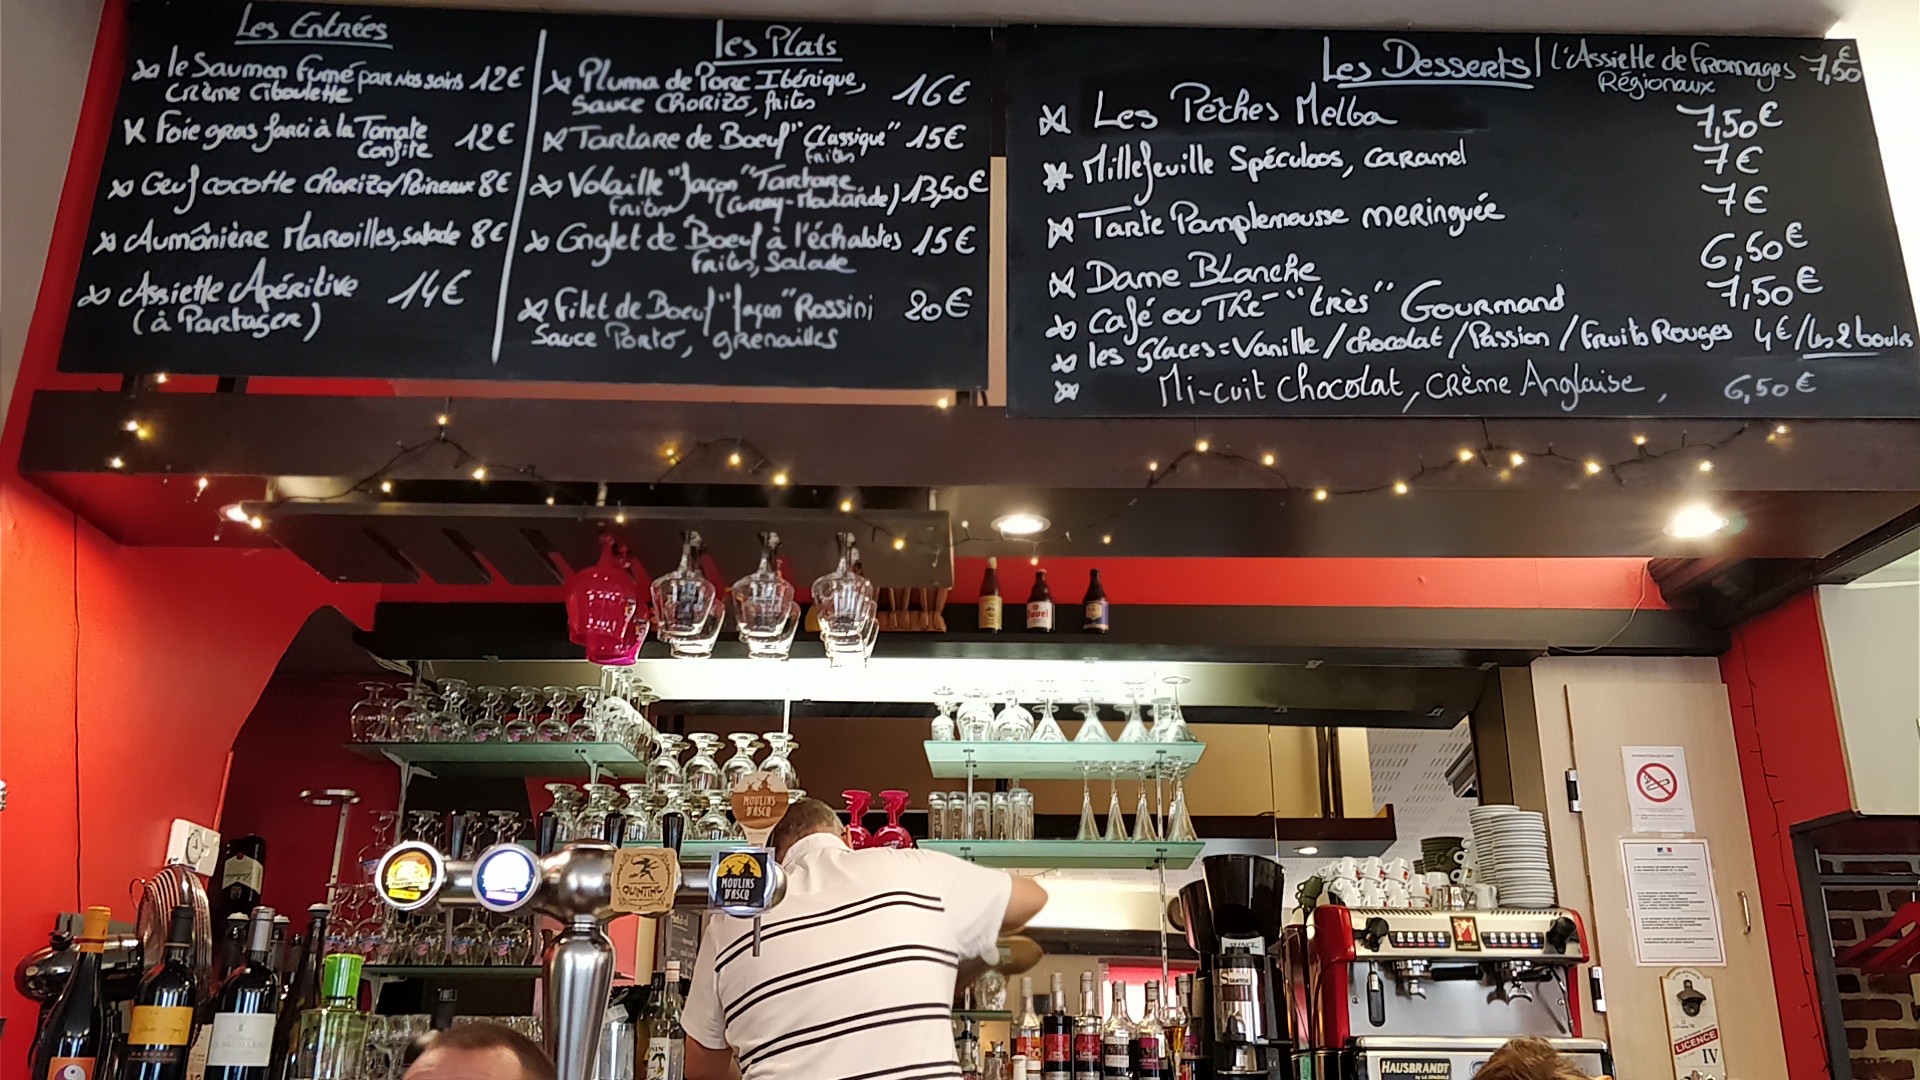 Les Entrées
le Saumon Fumé par nos soins 12€
Crème Ciboulette
Foie gras farci à la Tomate 12€
Confite
Oeuf cocotte chorizo/Poireaux 8€
Aumônière Maroilles, salade 8€
Assiette Apéritive 14€
(à Partager)
les Plats
Pluma de Porc Ibérique, 16€
Sauce Chorizo, frites
Tartare de Boeuf "Classique" 15€
frites
Volaille "façon" Tartare 13,50€
Frites (Curry-Moutarde)
Onglet de Boeuf à l'échalotes 15€
Frites, Salade
Filet de Boeuf "façon" Rossini 20€
Sauce Porto, grenailles
Les Desserts
L'Assiette de Fromages 7,50€
Régionaux
Les Pêches Melba 7,50€
Millefeuille Spéculoos, caramel 7€
Tarte Pamplemousse meringuée 7€
Dame Blanche 6,50€
Café ou Thé "très" Gourmand 7,50€
les glaces = Vanille / chocolat / Passion / Fruits Rouges 4€/les 2 boules
Mi-cuit Chocolat, Crème Anglaise, 6,50€
Duvel
MOULINS
D'ASCQ
QUINTINE
MOULINS
D'ASCQ
SANTOS
LICENCE
IV
HAUSBRANDT